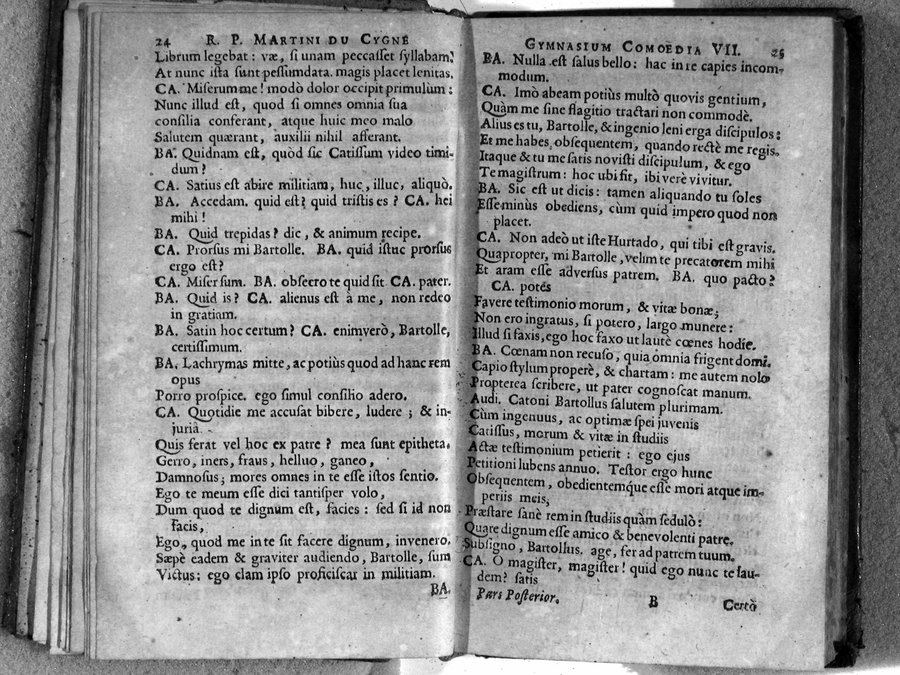 24 R. P. MARTINI DU CYGNE
Librum legebat: væ, si unam peccasset syllabam!
At nunc ista sunt pessumdata. magis placet lenitas.
CA. Miserum me! modò dolor occipit primulùm:
Nunc illud est, quod si omnes omnia sua
consilia conferant, atque huic meo malo
Salutem quærant, auxilii nihil afferant.
BA. Quidnam est, quòd sic Catissum video timi-
dum?
CA. Satius est abire militiam, huc, illuc, aliquò.
BA. Accedam. quid est? quid tristis es? CA. hei
mihi!
BA. Quid trepidas? dic, & animum recipe.
CA. Prorsus mi Bartolle. BA. quid istuc prorsus
ergo est?
CA. Miser sum. BA. obsecro te quid sit CA. pater.
BA. Quid is? CA. alienus est à me, non redeo
in gratiam.
BA. Satin hoc certum? CA. enimverò, Bartolle,
certissimum.
BA. Lachrymas mitte, ac potiùs quod ad hanc rem
opus
Porro prospice. ego simul consilio adero.
CA. Quotidie me accusat bibere, ludere; & in-
juriâ
Quis ferat vel hoc ex patre? mea sunt epitheta.
Gerro, iners, fraus, helluo, ganeo,
Damnosus; mores omnes in te esse istos sentio.
Ego te meum esse dici tantisper volo,
Dum quod te dignum est, facies: sed si id non
facis,
Ego, quod me in te sit facere dignum, invenero.
Sæpè eadem & graviter audiendo, Bartolle, sum
Victus: ego clam ipso proficiscar in militiam.
BA.
GYMNASIUM COMOEDIA VII. 25
BA. Nulla est salus bello: hac in re capies incom-
modum.
CA. Imò abeam potiùs multò quovis gentium,
Quàm me sine flagitio tractari non commodè.
Alius es tu, Bartolle, & ingenio leni erga discipulos:
Et me habes obsequentem, quando rectè me regis.
Itaque & tu me satis novisti discipulum, & ego
Te magistrum: hoc ubi sit, ibi verè vivitur.
BA. Sic est ut dicis: tamen aliquando tu soles
Esse minùs obediens, cùm quid impero quod non
placet.
CA. Non adeò ut iste Hurtado, qui tibi est gravis.
Quapropter, mi Bartolle, velim te precatorem mihi
Et aram esse adversus patrem. BA. quo pacto?
CA. potes
Favere testimonio morum, & vitæ bonæ;
Non ero ingratus, si potero, largo munere:
Illud si faxis, ego hoc faxo ut lautè cœnes hodie.
BA. Cœnam non recuso, quia omnia frigent domi.
Capio stylum properè, & chartam: me autem nolo
Propterea scribere, ut pater cognoscat manum.
Audi. Catoni Bartollus salutem plurimam.
Cùm ingenuus, ac optimæ spei juvenis
Catissus, morum & vitæ in studiis
Actæ testimonium petierit: ego ejus
Petitioni lubens annuo. Testor ergo hunc
Obsequentem, obedientemque esse mori atque im-
periis meis,
Præstare sanè rem in studiis quàm sedulò:
Quare dignum esse amico & benevolenti patre.
Subsigno, Bartollus. age, fer ad patrem tuum.
CA. O magister, magister! quid ego nunc te lau-
dem? satis
Pars Posterior. B Certò